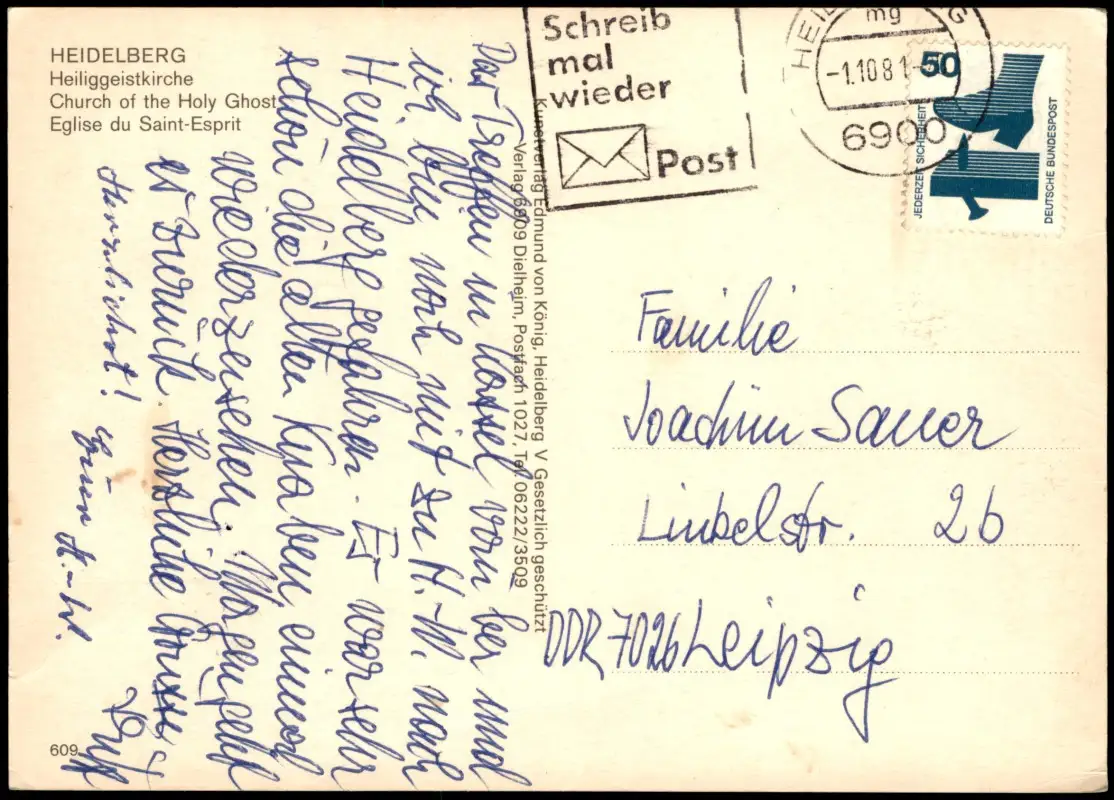 HEIDELBERG
Heiliggeistkirche
Church of the Holy Ghost
Eglise du Saint-Esprit
Das Treffen in Kassel vorn bei und
ich bin noch mit zu H.-W. nach
Heidelberg gefahren. Es war sehr
schön die alten Knaben einmal
wiederzusehen. Morgen geht
es zurück. Herzliche Grüsse
Herzlichst!
609
Kunstverlag Edmund von König, Heidelberg V Gesetzlich geschützt
Verlag 6909 Dielheim, Postfach 1027, Tel. 06222/3509
Schreib
mal
wieder
Post
HEIDELBERG
mg
-1.10.81
6900
50
JEDERZEIT SICHERHEIT
DEUTSCHE BUNDESPOST
Familie
Joachim Sauer
Linkelstr. 26
DDR 7026 Leipzig